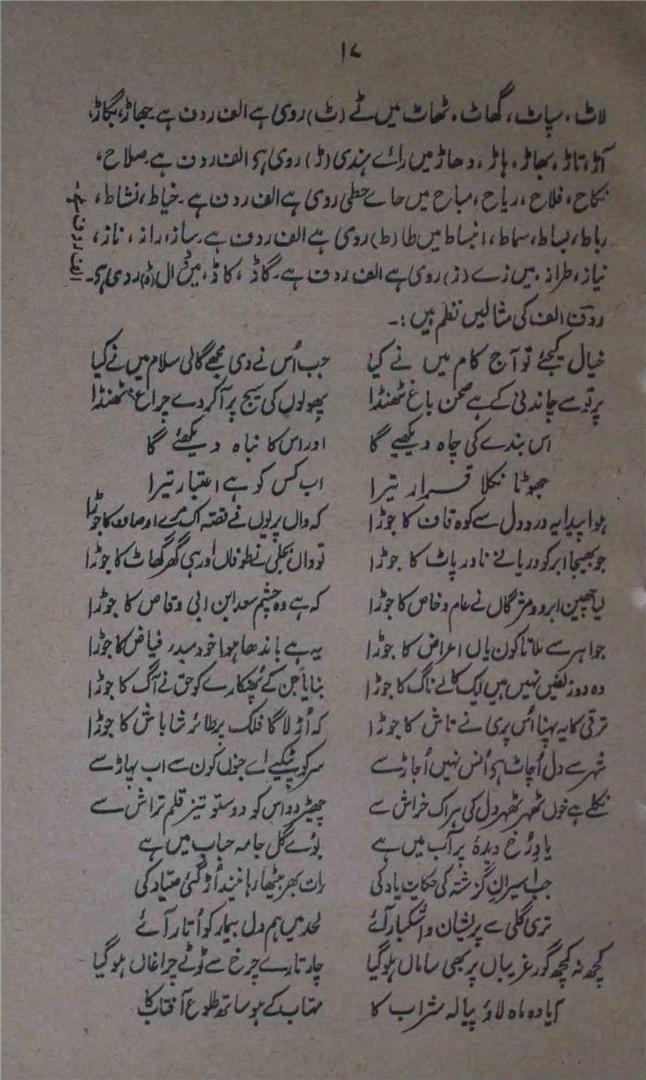 ۱۷
لاٹ، سپاٹ، گھاٹ، ٹھاٹ میں ٹے (ٹ) روی ہے الف ردف ہے۔ جھاڑ، بگاڑ،
آڑ، تاڑ، بھاڑ، ہاڑ، دھاڑ میں رائے ہندی (ڑ) روی ہے الف ردف ہے۔ صلاح،
نکاح، فلاح، ریاح، مباح میں حائے حطی روی ہے الف ردف ہے۔ خیاط، نشاط،
رباط، بساط، سماط، انبساط میں طا (ط) روی ہے الف ردف ہے۔ ساز، راز، ناز،
نیاز، طراز، میں زے (ز) روی ہے الف ردف ہے۔ گاڈ، کاڈ، میں ڈال (ڈ) روی ہے۔
الف ردف ہے۔
ردف الف کی مثالیں نظم میں :۔
خیال کیجئے تو آج کام میں نے کیا جب اُس نے دی مجھے گالی سلام میں نے کیا
پرتو سے چاندنی کے ہے صحن باغ ٹھنڈا پھولوں کی سیج پر آکر دے چراغ ٹھنڈا
اس بندے کی چاہ دیکھیے گا اور اس کا نباہ دیکھئے گا
جھوٹا نکلا قرار تیرا اب کس کو ہے اعتبار تیرا
ہوا پیدا یہ درد دل سے کوہ قاف کا جوڑا کہ واں پریوں نے قصہ اک مرے اوصاف کا جوڑا
جو بھیجا ابر کو دریا نے نادر پاٹ کا جوڑا تو واں بجلی نے طوفاں اور ہی گھر گھاٹ کا جوڑا
لیا چھین ابرو و مژگاں نے عام و خاص کا جوڑا کہ ہے وہ چشم سعد ابن ابی وقاص کا جوڑا
جواہر سے ملاتا کون یاں اعراض کا جوڑا یہ ہے باندھا ہوا خود مبدء فیاض کا جوڑا
وہ دو زلفیں نہیں ہیں ایک کالے ناگ کا جوڑا بنایا جن کے پھنکارے کو حق نے آگ کا جوڑا
ترقی کا یہ پہنا اُس پری نے تاش کا جوڑا کہ اُڑ لاگا فلک پر طائر شاباش کا جوڑا
شہر سے دل اُچاٹ ہے اُنس نہیں اُجاڑ سے سر کو پٹکیے اے جنوں کون سے اب پہاڑ سے
نکلے ہے خوں ٹھہر ٹھہر دل کی ہر اک خراش سے چھیڑ دو اس کو دوستو تیز قلم تراش سے
یاد رُخ دیدۂ پر آب میں ہے بوئے گل جامہ حباب میں ہے
جب اسیرانِ گزشتہ کی حکایت یاد کی رات بھر بیٹھا رہا نیند اُڑ گئی صیّاد کی
تری گلی سے پریشان و اشکبار آئے لحد میں ہم دل بیمار کو اُتار آئے
کچھ نہ کچھ گور غریباں پر بھی ساماں ہو گیا چار تارے چرخ سے ٹوٹے چراغاں ہو گیا
آیا وہ ماہ لاؤ پیالہ شراب کا مہتاب کے ہو ساتھ طلوع آفتاب کا